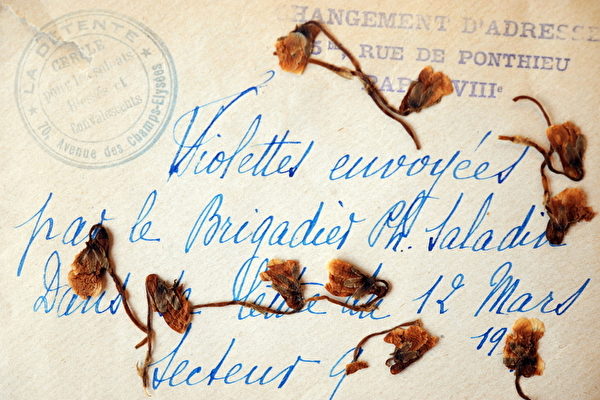 LA DÉTENTE
CERCLE
pour les soldats
Convalescents
70, Avenue des Champs-Elysées
CHANGEMENT D'ADRESSE
RUE DE PONTHIEU
PARIS VIIIe
Violettes envoyées
par le Brigadier Ph. Saladin
Dans 12 Mars
19
Secteur 9